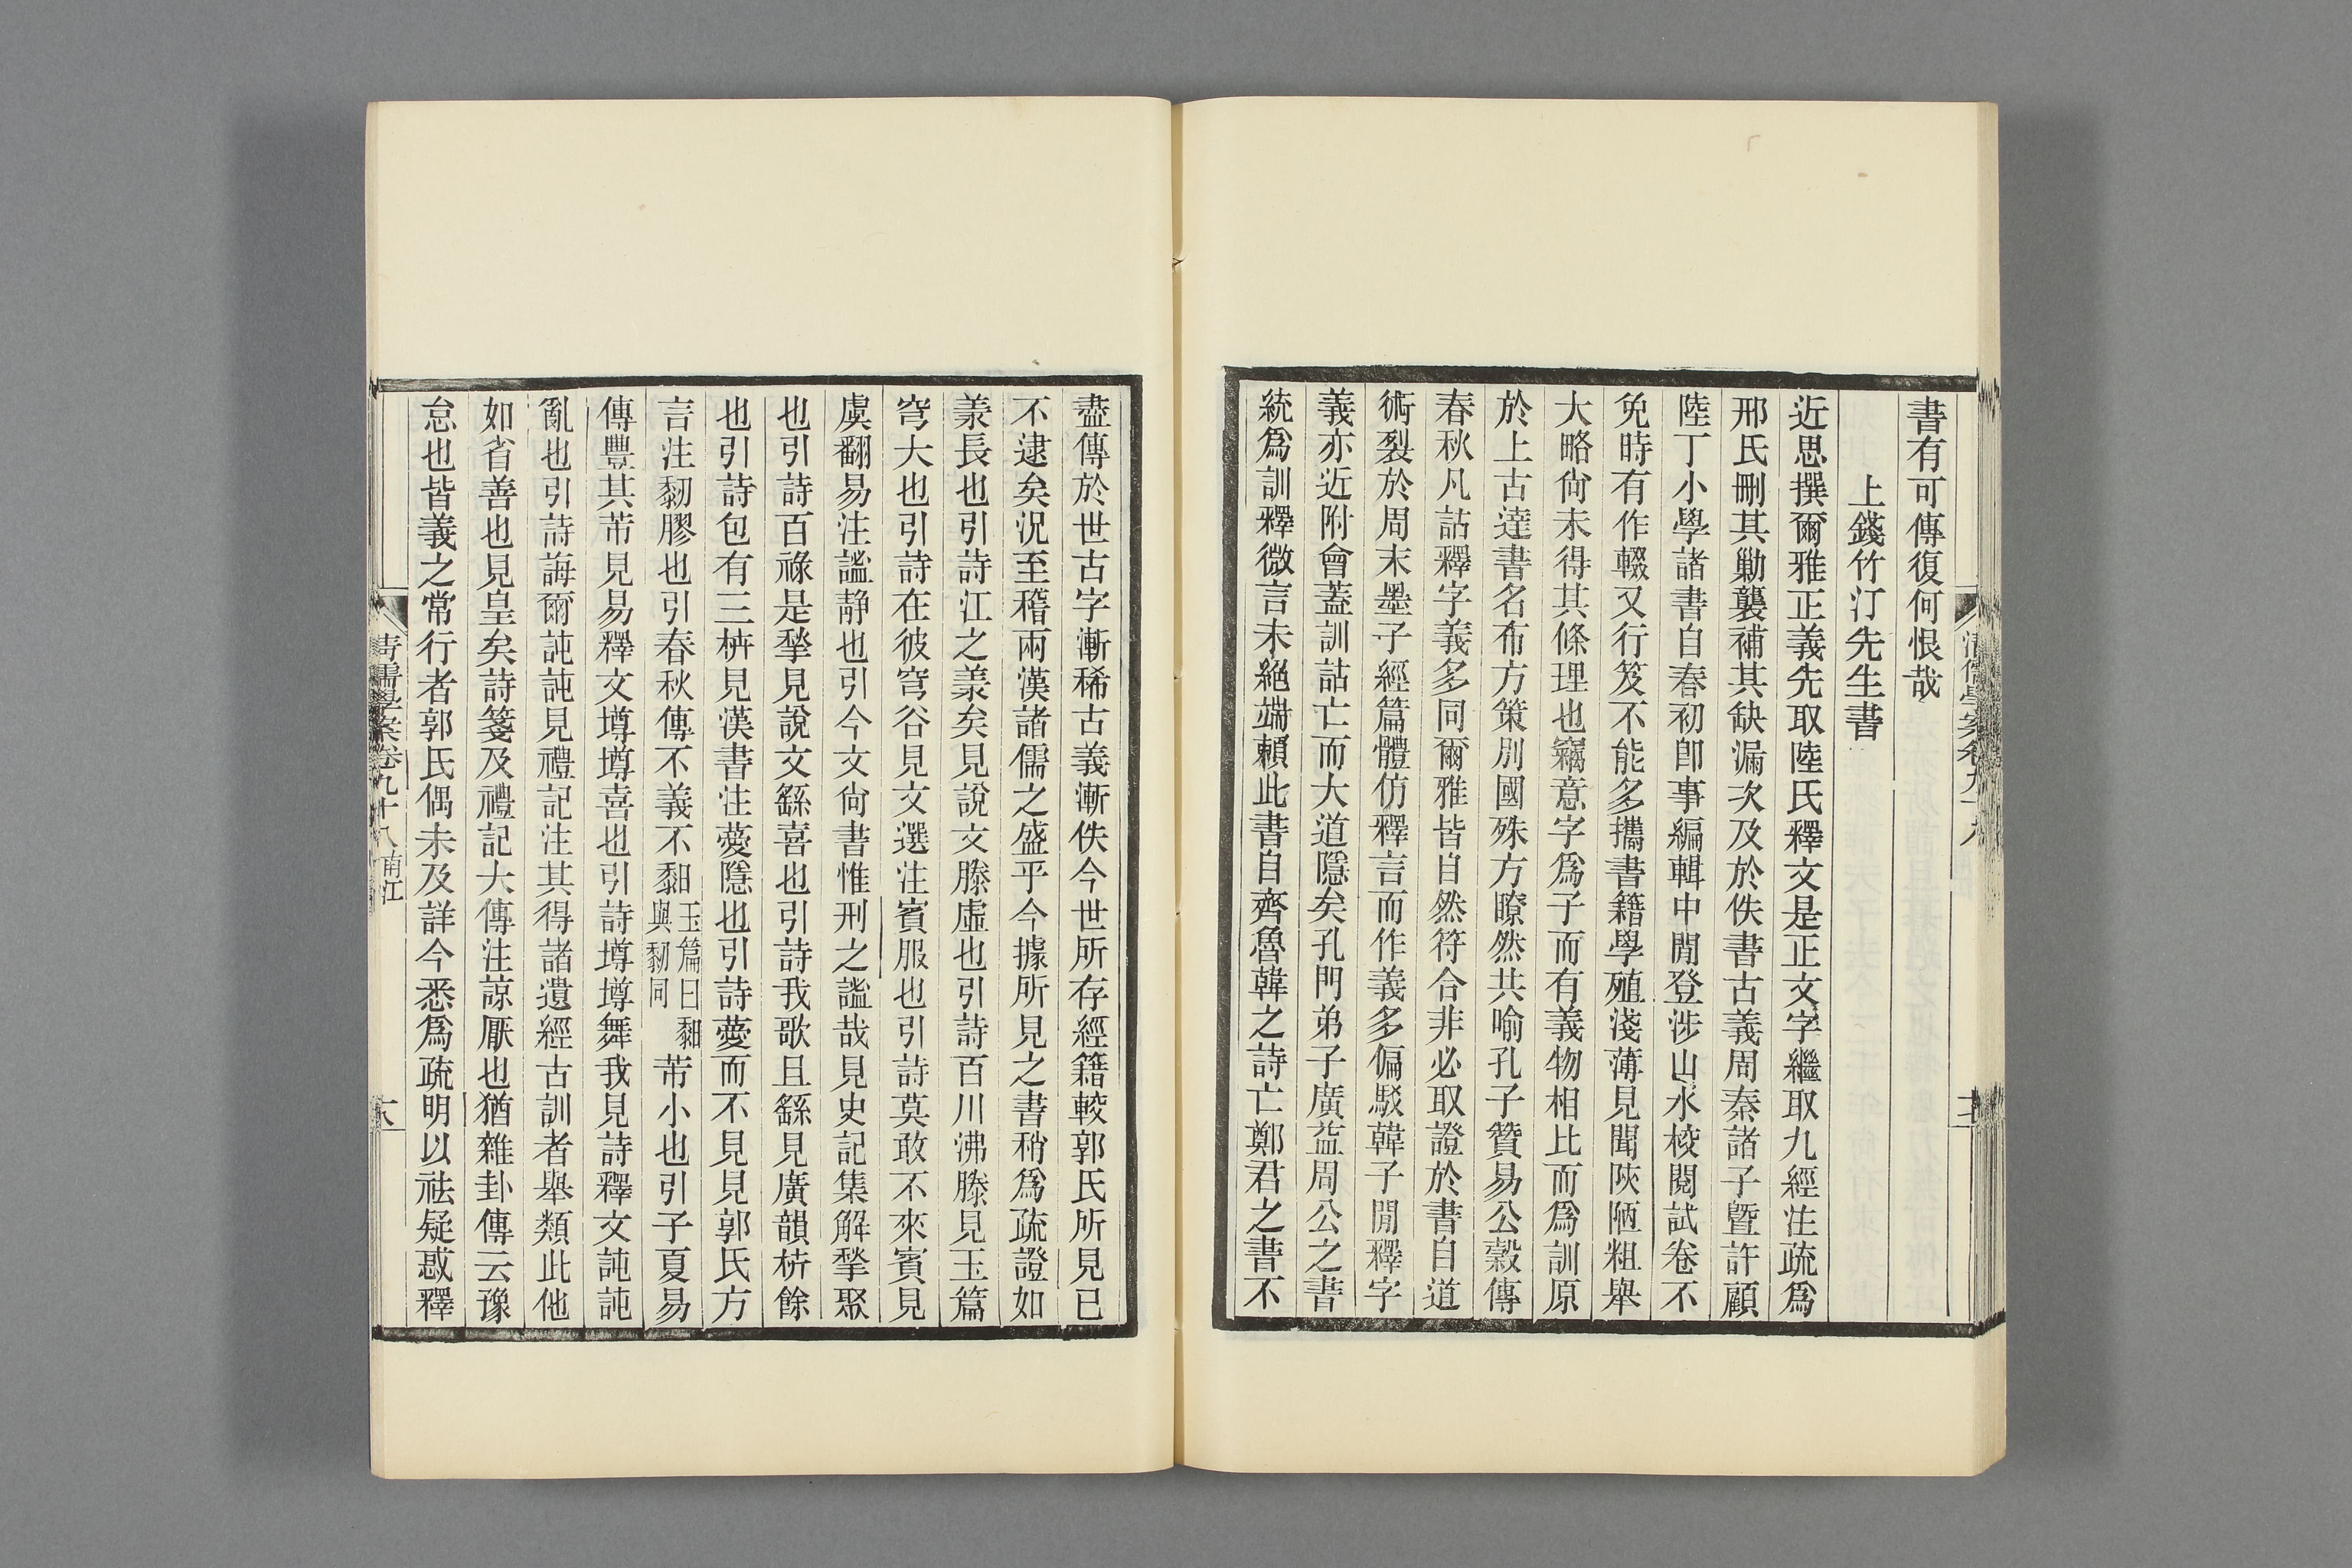 書有可傳復何恨哉
上錢竹汀先生書
近思撰爾雅正義先取陸氏釋文是正文字繼取九經注疏爲
邢氏刪其勦襲補其缺漏次及於佚書古義周秦諸子曁許顧
陸丁小學諸書自春初卽事編輯中閒登涉山水校閱試卷不
免時有作輟又行笈不能多攜書籍學殖淺薄見聞陝陋粗舉
大略尙未得其條理也竊意字爲子而有義物相比而爲訓原
於上古達書名布方策別國殊方瞭然共喻孔子贊易公穀傳
春秋凡詁釋字義多同爾雅皆自然符合非必取證於書自道
術裂於周末墨子經篇體仿釋言而作義多偏駁韓子閒釋字
義亦近附會蓋訓詁亡而大道隱矣孔門弟子廣益周公之書
統爲訓釋微言未絕端賴此書自齊魯韓之詩亡鄭君之書不
盡傳於世古字漸稀古義漸佚今世所存經籍較郭氏所見已
不逮矣況至稽兩漢諸儒之盛乎今據所見之書稍爲疏證如
羕長也引詩江之羕矣見說文滕虛也引詩百川沸滕見玉篇
穹大也引詩在彼穹谷見文選注賓服也引詩莫敢不來賓見
虞翻易注謐靜也引今文尙書惟刑之謐哉見史記集解揫聚
也引詩百祿是揫見說文繇喜也引詩我歌且繇見廣韻枿餘
也引詩包有三枿見漢書注薆隱也引詩薆而不見見郭氏方
言注䵒膠也引春秋傳不義不䵑玉篇曰䵑與䵒同芾小也引子夏易
傳豐其芾見易釋文壿壿喜也引詩壿壿舞我見詩釋文訰訰
亂也引詩誨爾訰訰見禮記注其得諸遺經古訓者舉類此他
如省善也見皇矣詩箋及禮記大傳注諒厭也猶雜卦傳云豫
怠也皆義之常行者郭氏偶未及詳今悉爲疏明以祛疑惑釋
清儒學案卷九十八 南江